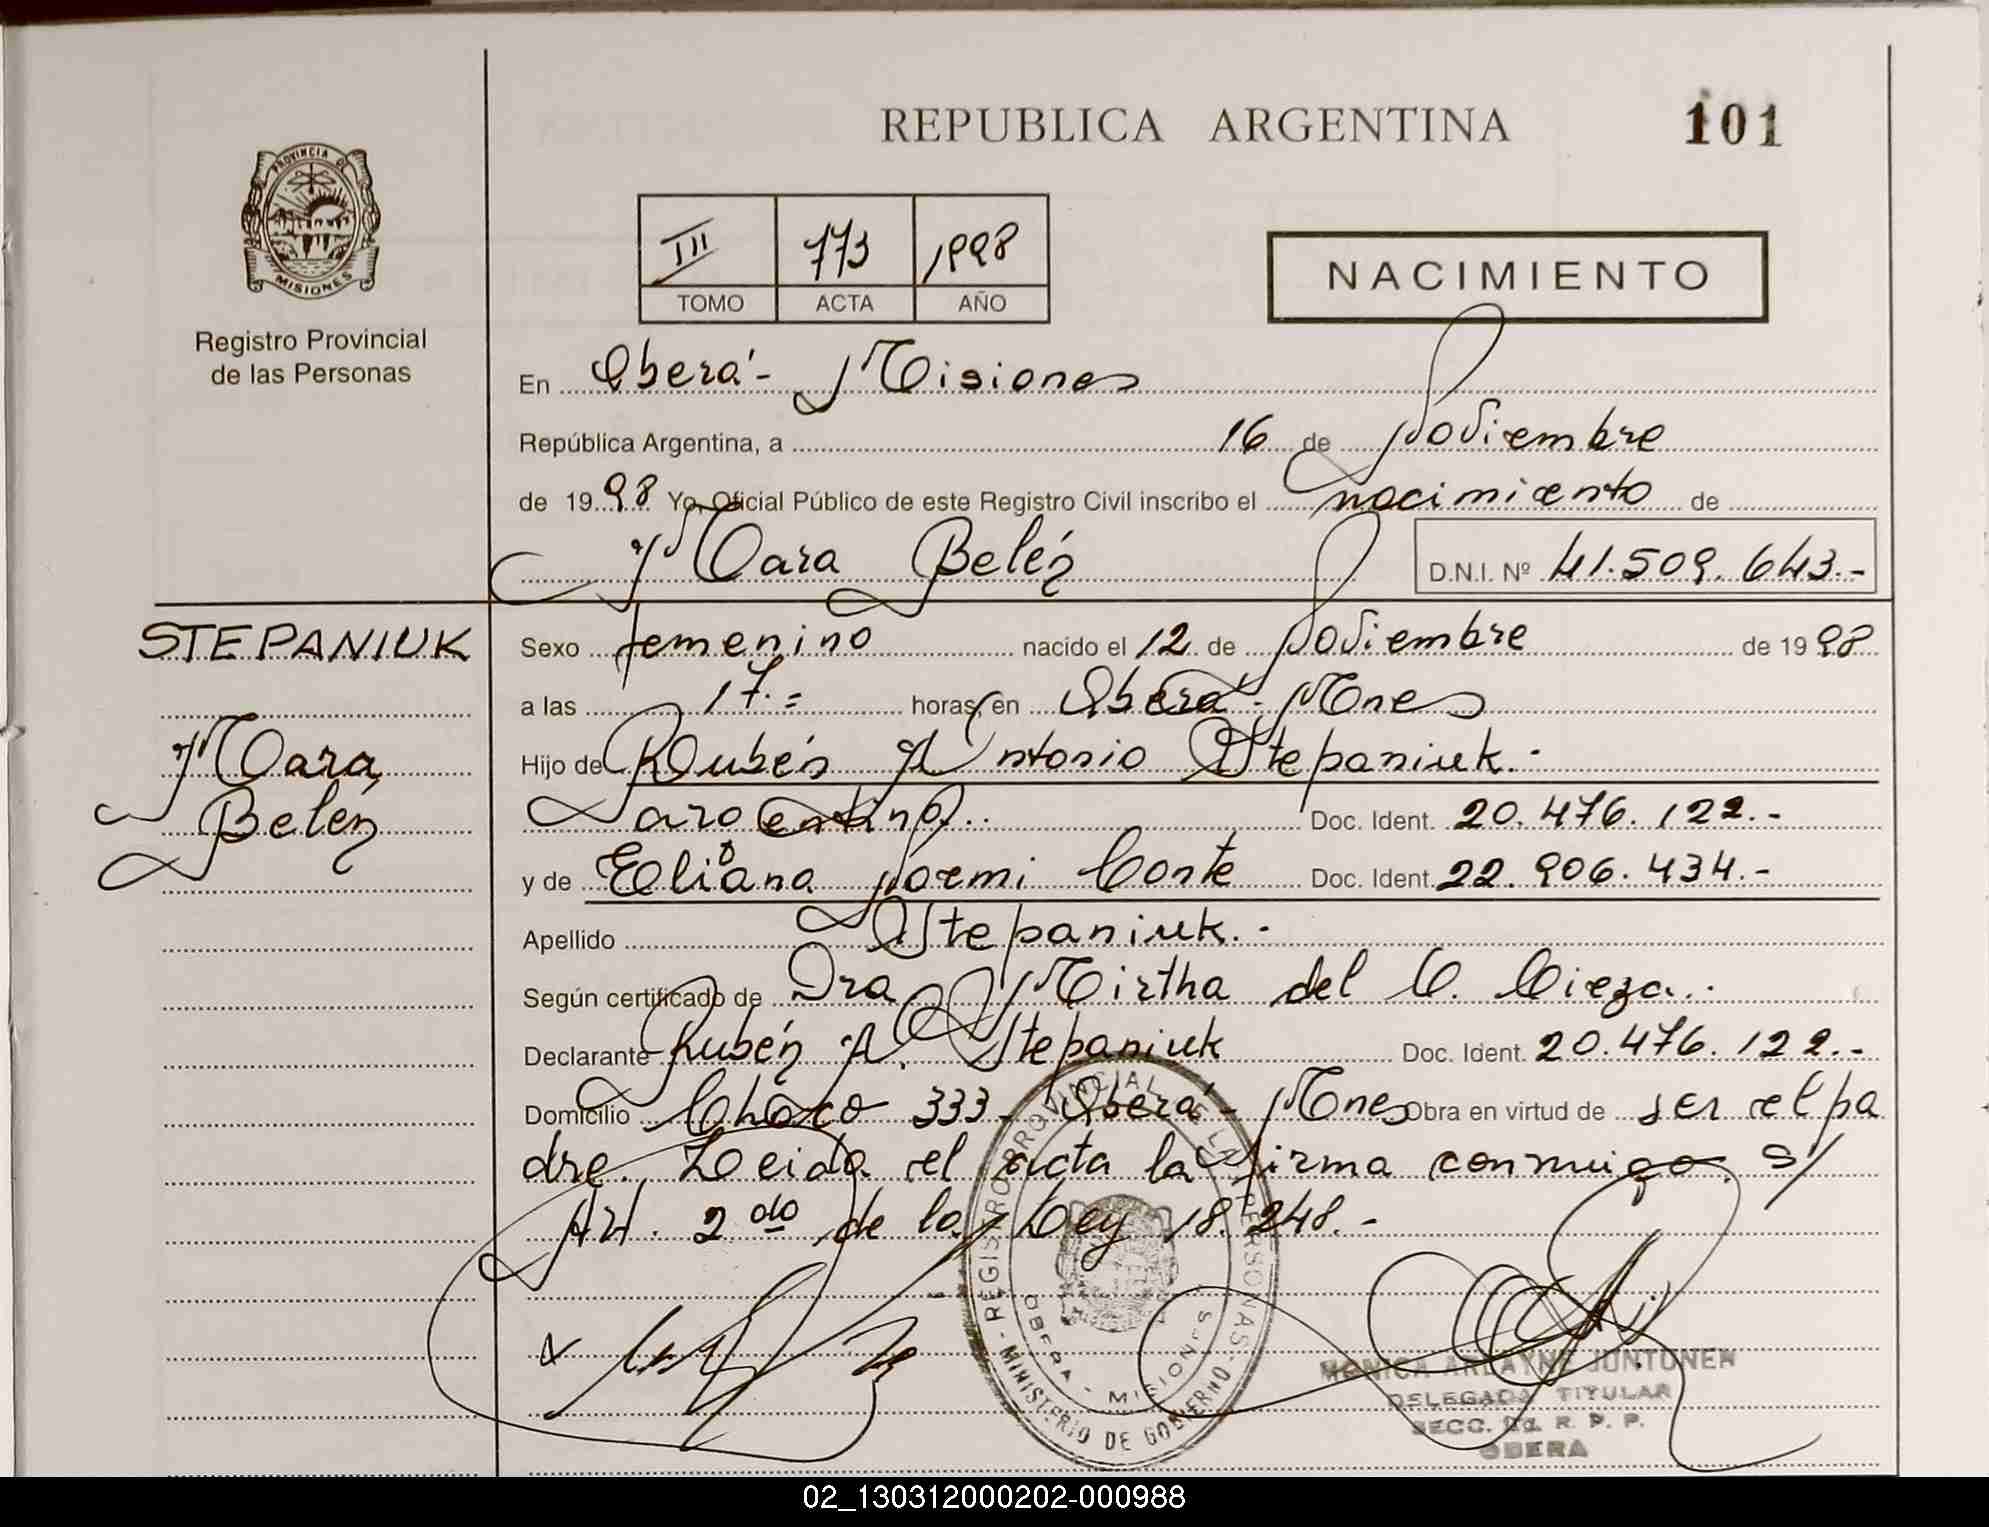 REPUBLICA ARGENTINA
101
PROVINCIA DE
MISIONES
Registro Provincial
de las Personas
III 773 1998
TOMO ACTA AÑO
NACIMIENTO
En Oberá - Misiones
República Argentina, a 16 de Noviembre
de 1998 Yo, Oficial Público de este Registro Civil inscribo el nacimiento de
Mara Belén D.N.I. Nº 41.509.643.-
STEPANIUK
Mara
Belén
Sexo femenino nacido el 12 de Noviembre de 1998
a las 17.= horas, en Oberá - Mnes
Hijo de Rubén Antonio Stepaniuk.-
argentino.. Doc. Ident. 20.476.122.-
y de Eliana Noemi Conte Doc. Ident. 22.906.434.-
Apellido Stepaniuk.-
Según certificado de Dra Mirtha del C. Cieza.-
Declarante Rubén A. Stepaniuk Doc. Ident. 20.476.122.-
Domicilio Chaco 333 - Oberá - Mnes Obra en virtud de ser el pa
dre. Leida el acta la firma conmigo s/
Art. 2do de la Ley 18.248.-
REGISTRO PROVINCIAL DE LAS PERSONAS
OBERA - MISIONES
- MINISTERIO DE GOBIERNO -
MONICA ARLAYNE JUNTONEN
DELEGADA TITULAR
SECC. R. P. P.
OBERA
02_130312000202-000988